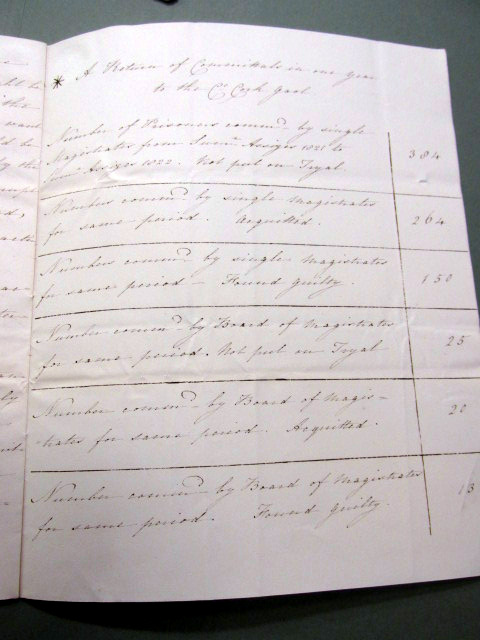 * A Return of Committals in one year
to the Co. Cork Gaol
Number of Prisoners comm.d by single
Magistrates from Sum.r Assizes 1821 to
Sum.r Assizes 1822. Not put on Tryal 384
Number comm.d by single Magistrates
for same period. Acquitted. 264
Number comm.d by single Magistrates
for same period – Found guilty. 150
Number comm.d by Board of Magistrates
for same period. Not put on Tryal 25
Number comm.d by Board of Magis-
trates for same period. Acquitted. 20
Number comm.d by Board of Magistrates
for same period. Found guilty. 13